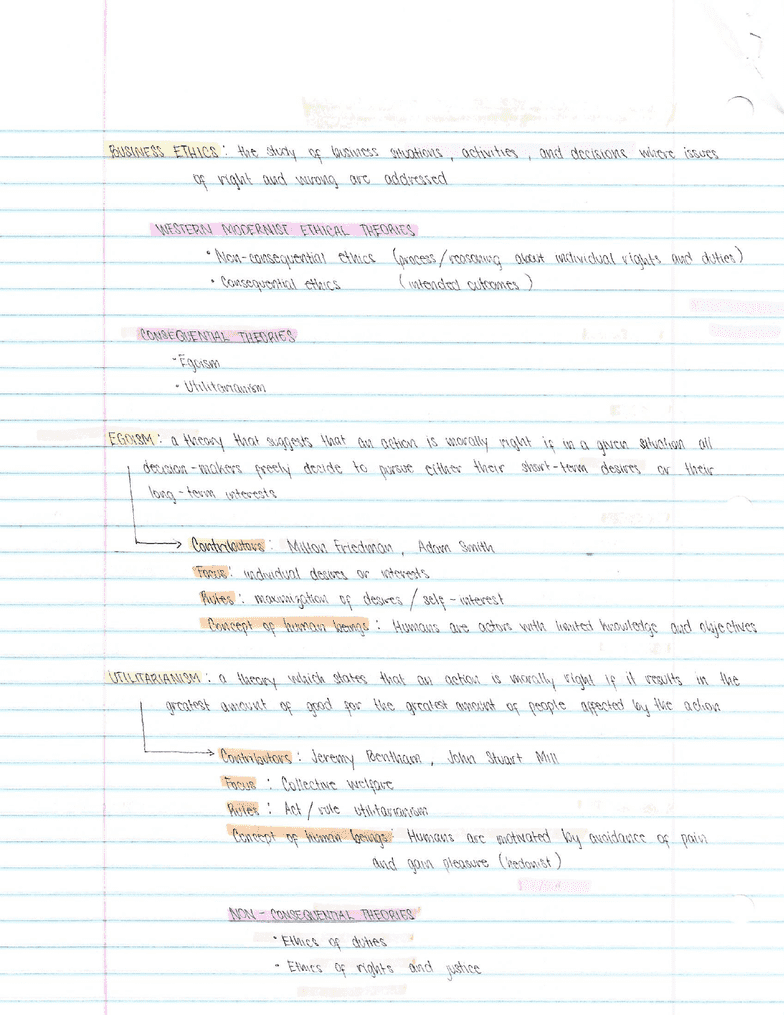 BUSINESS ETHICS : the study of business situations, activities, and decisions where issues
of right and wrong are addressed
WESTERN MODERNIST ETHICAL THEORIES
• Non-consequential ethics (process/reasoning about individual rights and duties)
• Consequential ethics (intended outcomes)
CONSEQUENTIAL THEORIES
• Egoism
• Utilitarianism
EGOISM : a theory that suggests that an action is morally right if in a given situation all
decision-makers freely decide to pursue either their short-term desires or their
long-term interests
Contributors : Milton Friedman, Adam Smith
Focus : individual desires or interests
Rules : maximization of desires / self-interest
Concept of human beings : Humans are actors with limited knowledge and objectives
UTILITARIANISM : a theory which states that an action is morally right if it results in the
greatest amount of good for the greatest amount of people affected by the action
Contributors : Jeremy Bentham, John Stuart Mill
Focus : Collective welfare
Rules : Act / rule utilitarianism
Concept of human beings : Humans are motivated by avoidance of pain
and gain pleasure (hedonist)
NON-CONSEQUENTIAL THEORIES
• Ethics of duties
• Ethics of rights and justice